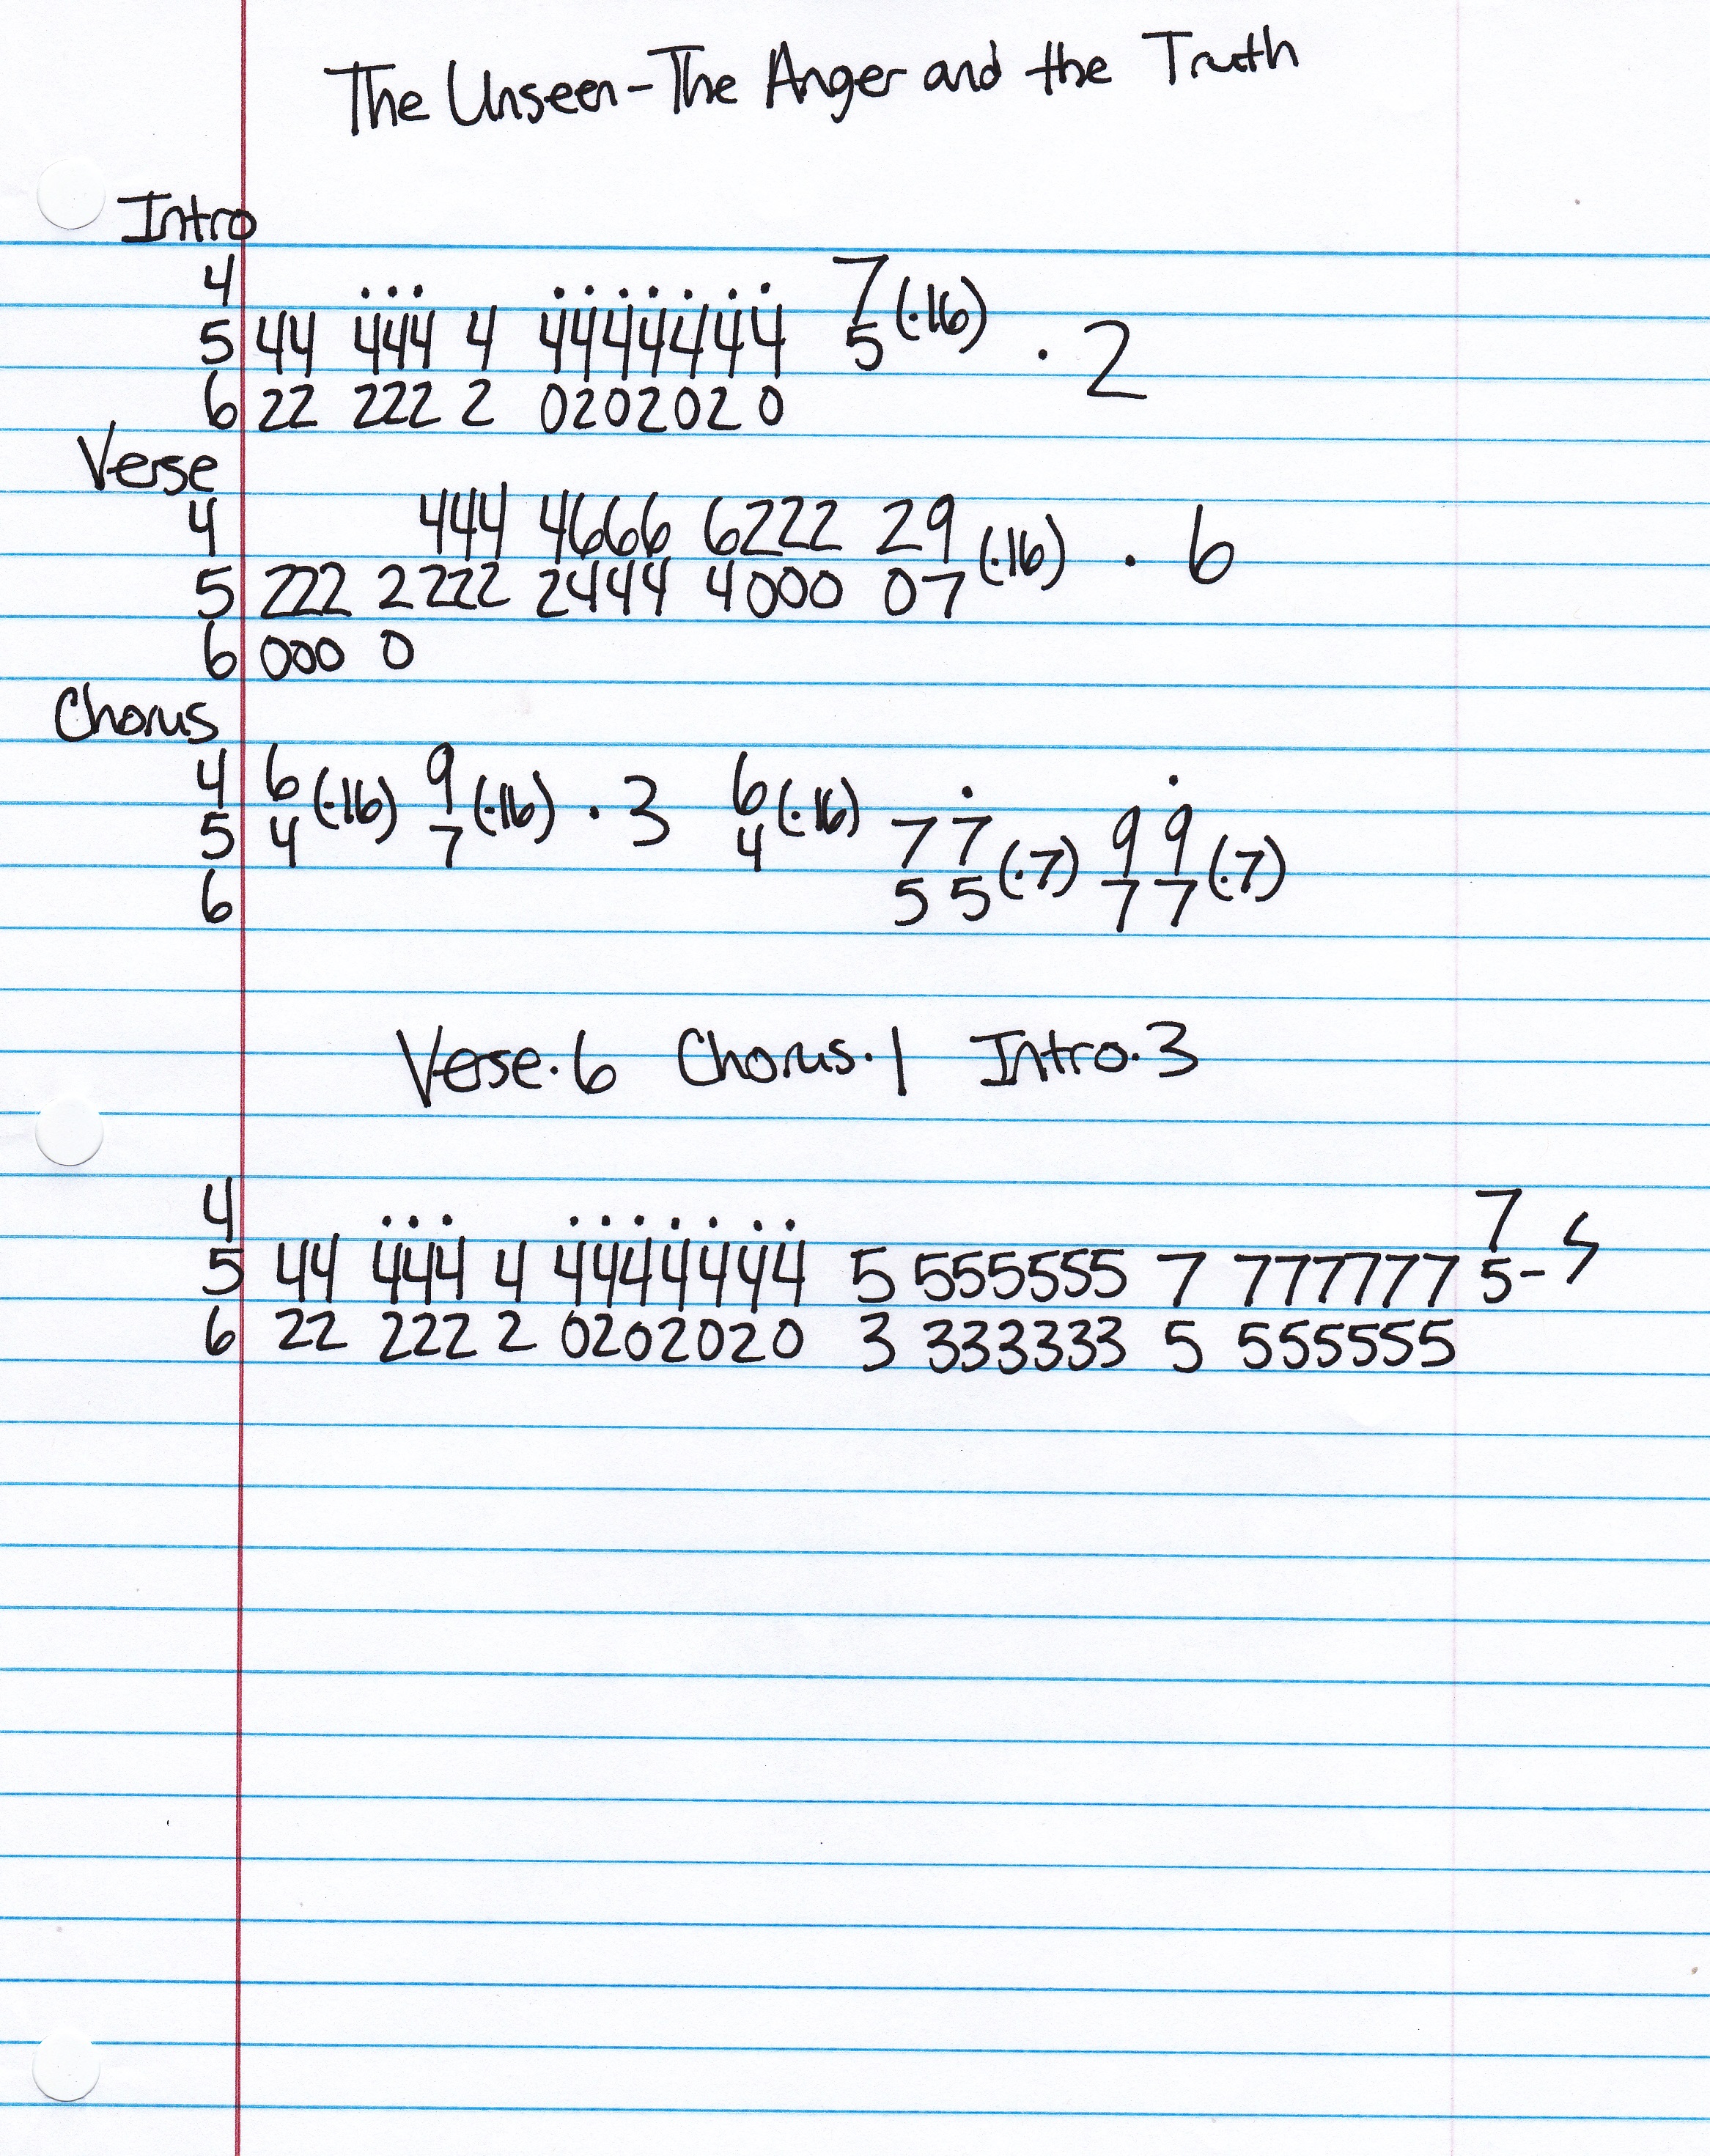 The Unseen-The Anger and the Truth
Intro
4 ... ....... 7
5 44 444 4 4444444 5 (·16) · 2
6 22 222 2 0202020
Verse
4 444 4666 6222 29
5 222 2222 2444 4000 07 (·16) · 6
6 000 0
Chorus
4 6 (·16) 9 (·16) · 3 6 (·16) . .
5 4 7 4 77 (·7) 99 (·7)
6 55 77
Verse·6 Chorus·1 Intro·3
4 ... ....... 7
5 44 444 4 4444444 5 555555 7 777777 5-
6 22 222 2 0202020 3 333333 5 555555